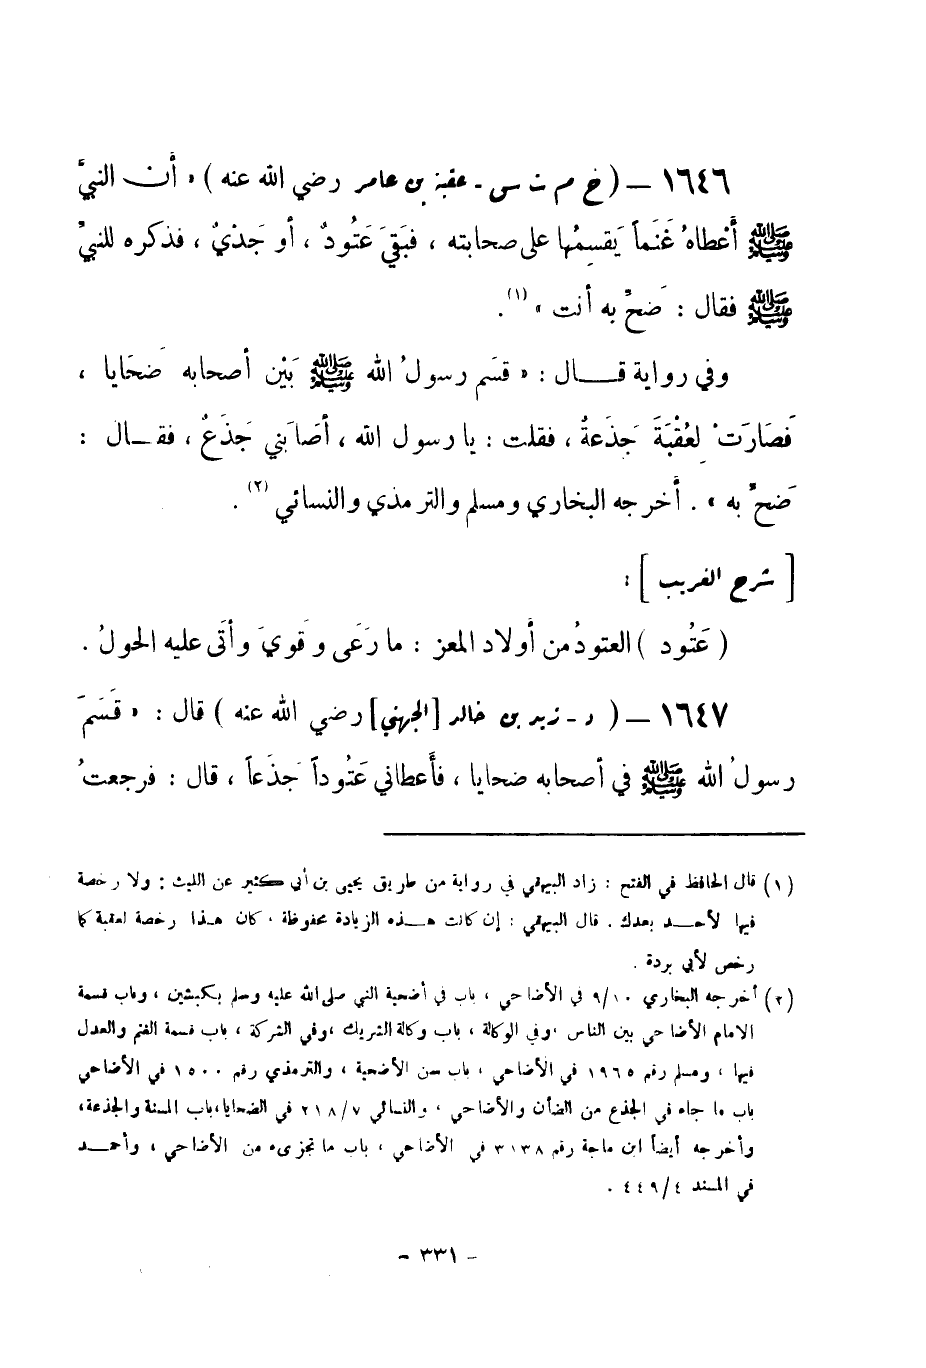 ١٦٤٦ – ( خ م ت س - عقبة بن عامر رضي الله عنه ) « أن النبيَّ
ﷺ أعْطاهُ غَنَماً يَقسِمُها على صحابته ، فبَقيَ عَتُودٌ ، أو جَذْيٌ ، فذكره للنبيِّ
ﷺ فقال : ضَحِّ به أنت » (١) .
وفي رواية قـــال : « قسَم رسولُ الله ﷺ بَيْن أصحابه ضَحَايا ،
فَصَارَتْ لِعُقْبَةَ جَذَعةٌ ، فقلت : يا رسول الله ، أصَابَني جَذَعٌ ، فقـال :
ضَحِّ به » . أخرجه البخاري ومسلم والترمذي والنسائي (٢) .
[ شرح الغريب ] :
( عَتُود ) العتودُ من أولاد المعز : ما رَعَى وقويَ وأتَى عليه الحولُ .
١٦٤٧ – ( د - زيد بن خالد [الجهني] رضي الله عنه ) قال : « قَسَمَ
رسولُ الله ﷺ في أصحابه ضحايا ، فأَعطاني عَتُوداً جَذَعاً ، قال : فرجعتُ
(١) قال الحافظ في الفتح : زاد البيهقي في رواية من طريق يحيى بن أبي كثير عن الليث : ولا رخصة
فيها لأحـــد بعدك . قال البيهقي : إن كانت هـــذه الزيادة محفوظة ، كان هـذا رخصة لعقبة كما
رخص لأبي بردة .
(٢) أخرجه البخاري ٩/١٠ في الأضاحي ، باب في أضحية النبي صلى الله عليه وسلم بكبشين ، وباب قسمة
الامام الأضاحي بين الناس ، وفي الوكالة ، باب وكالة الشريك ، وفي الشركة ، باب قسمة الغنم والعدل
فيها ، ومسلم رقم ١٩٦٥ في الأضاحي ، باب سن الأضحية ، والترمذي رقم ١٥٠٠ في الأضاحي
باب ما جاء في الجذع من الضأن والأضاحي ، والنسائي ٢١٨/٧ في الضحايا ، باب المسنة والجذعة،
وأخرجه أيضاً ابن ماجة رقم ٣١٣٨ في الأضاحي ، باب ما تجزىء من الأضاحي ، وأحمـــد
في المسند ٤٤٩/٤ .
- ٣٣١ -